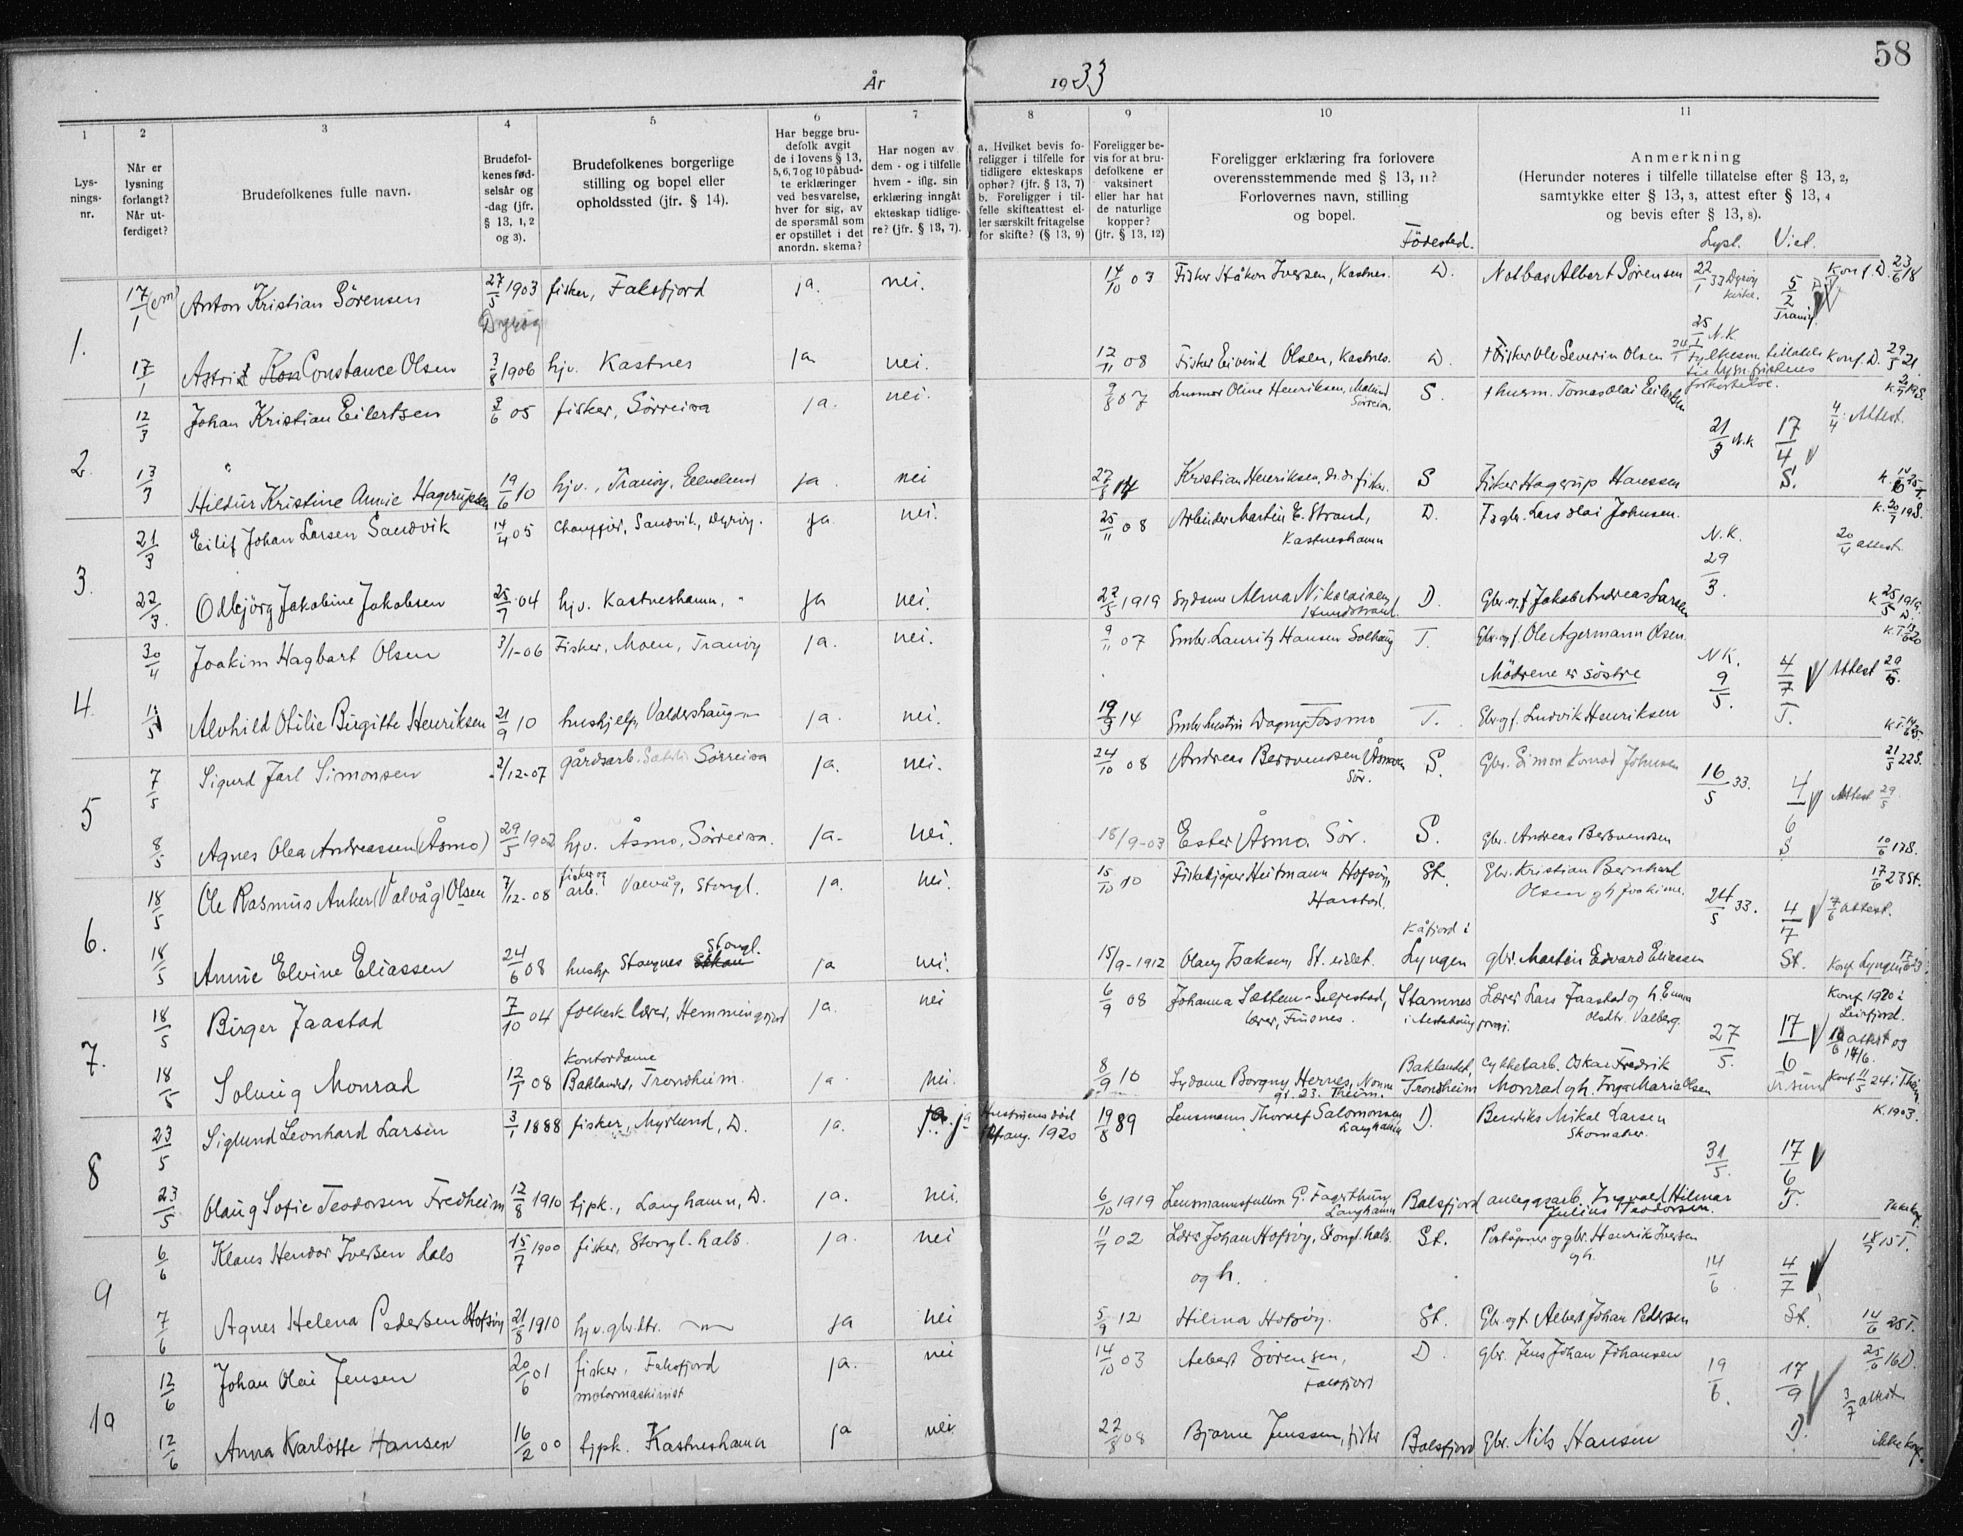 58
År 1933
1 2 3 4 5 6 7 8 9 10 11
Lys-
nings-
nr.
Når er
lysning
forlangt?
Når ut-
ferdiget?
Brudefolkenes fulle navn.
Brudefol-
kenes fød-
selsår og
-dag (jfr.
§ 13, 1, 2
og 3).
Brudefolkenes borgerlige
stilling og bopel eller
opholdssted (jfr. § 14).
Har begge bru-
defolk avgit
de i lovens § 13,
5, 6, 7 og 10 påbud-
te erklæringer
ved besvarelse,
hver for sig, av
de spørsmål som
er opstillet i det
anordn. skema?
Har nogen av
dem - og i tilfelle
hvem - iflg. sin
erklæring inngåt
ekteskap tidlige-
re? (jfr. § 13, 7).
a. Hvilket bevis fo-
religger i tilfelle for
tidligere ekteskaps
ophør? (jfr. § 13, 7)
b. Foreligger i til-
felle skifteattest el-
ler særskilt fritagelse
for skifte? (§ 13, 9)
Foreligger be-
vis for at bru-
defolkene er
vaksinert
eller har hat
de naturlige
kopper?
(jfr. § 13, 12)
Foreligger erklæring fra forlovere
overensstemmende med § 13, 11?
Forlovernes navn, stilling
og bopel.
Fødested.
Anmerkning
(Herunder noteres i tilfelle tillatelse efter § 13, 2,
samtykke efter § 13, 3, attest efter § 13, 4
og bevis efter § 13, 8).
Lyst. Viet.
1. 17/1 Anton Kristian Sørensen 27/5 1903 fisker, Faksfjord ja. nei. 14/10 03 Fisker Håkon Iversen, Kastnes. D. Notbas Albert Sørensen 22/1 33 Dyrøy kirke. 5/2 Tranøy. Konf. D. 23/6 18
Dyrøy
25/1 N.K.
17/1 Astrid Constance Olsen 3/8 1906 hjv. Kastnes ja nei. 12/11 08 Fisker Eivind Olsen, Kastnes. D. † Fisker Ole Severin Olsen 24/1 Fylkesm. tillatelse Konf. D. 29/5 21.
til lysn. fristens
forkortelse.
2. 12/3 Johan Kristian Eilertsen 3/6 05 fisker, Sørreisa ja. nei. 9/8 07 Oline Henriksen, S. † husm. Tomas Olai Eilertsen
Sørreisa
21/3 N.K. 17/4 4/4 Attest.
13/3 Hildur Kristine Annie Hagerupsen 19/6 10 hjv., Tranøy, ja. nei 27/8 14 Kristian Henriksen, fisker. S Fisker Hagerup Hanssen S.
3. 21/3 Eilif Johan Larsen Sandvik 14/4 05 Chauffør, Sandvik, Dyrøy. ja nei. 25/11 08 Arbeider Martin E. Strand, D. Lars Olai Johnsen. K. 20/7 19 S.
Kastneshamn
N.K. 29/3. 20/4 attest.
22/3. Odbjörg Jakobine Jakobsen 25/7 04 hjv. Kastneshamn, " ja nei. 22/5 1919 Sydame Alma Nikolaisen D. Gbr. og f. Jakob Andreas Larsen K 25/5 1919. D.
4. 30/4 Joakim Hagbart Olsen 3/1-06 Fisker, Moen, Tranøy ja. nei. 9/11 07 Smbr. Lauritz Hansen Solhaug T. Gbr. og f. Ole Agermann Olsen.
Mødrene er søstre
N.K. 9/5. 4/7 Attest 29/5.
Alvhild Otilie Birgitte Henriksen 21/9 10 hushjelp, Valdershaug ja. nei. 19/9 14 Dagny Fossmo T. Gbr. og f. Ludvik Henriksen T.
5 7/5 Sigurd Jarl Simonsen 2/12-07 gårdsarb. Sørreisa ja. nei. 24/10 08 Andreas Bersvendsen Åsmo S. Gbr. Simon Konrad Johnsen 21/5 22S.
Sør.
16/5 33. 4/6 Attest 29/5.
8/5 Agnes Olea Andreassen (Åsmo) 29/5 1902 hjv. Åsmo, Sørreisa. ja. nei. 18/9-03 Ester Åsmo. Sør. S. Gbr. Andreas Bersvendsen S 10/6 17S.
6. 18/5 Ole Rasmus Anker (Valvåg) Olsen 7/12-08 fisker og arb. Valvåg, Stongl. ja. nei. 15/10 10 Fiskekjøper Heitmann Hofsøy, St. Gbr. Kristian Bernhard 17/6 23 St.
Harstad. Olsen og h. Joakime.
24/5 33. 4/7 7/6 attest.
Kåfjord i
18/5 Annie Elvine Eliassen 24/6 08 hushj. Stangnes Stongl. ja nei. 15/9-1912 Olaug Isaksen, St. eidet. Lyngen gbr. Martin Edvard Eliassen St. Konf. Lyngen
7. 18/5 Birger Jaastad 7/10 04 folkesk. lærer, Hemmingsfjord ja. nei 6/9 08 Johanna Sættem-Seljestad, Stamnes Lærer Lars Jaastad og h. Emma Konf. 1920 i
lærer, Finsnes. Olsdtr. Valberg. Leirfjord.
27/5. 17/6 attest og
Kontordame
18/5 Solveig Monrad 12/1 08 Baklandet, Trondheim. ja. nei. 8/9 10 Sydame Borgny Hernes, Baklandet, Trondheim Cykkelarb. Oskar Fredrik
Monrad og h. Inga Maria Olsen Konf. 11/5 24 i
8 23/5 Siglund Leonhard Larsen 3/1 1888 fisker, Myrlund, D. ja. ja Hustruens død 1920 19/8 89 Lensmann Thoralf Salomonsen D. Bendiks Mikal Larsen K. 1903.
Langhamn Skomaker.
31/5. 17/6
23/5. Olaug Sofie Teodorsen Fredheim 12/8 1910 tjpk., Langhamn, D. ja. nei. 6/10 1919 Lensmannsfullm. G. Fagerthung Balsfjord anleggsarb. Ingvald Hilmar T.
Langhamn Julius Teodorsen.
9 6/6 Klaus Hendor Iversen Lals 15/7 1900 fisker, Stongl.hals. ja. nei 11/7 02 Lærer Johan Hofsøy, Stongl.hals. St. Poståpner og gbr. Henrik Iversen 18/7 15 T.
og h. og h.
14/6 4/7
7/6 Agnes Helena Pedersen Hofsøy 21/8 1910 hjv. gbr.dtr. ja nei 5/9 12 Hilma Hofsøy. St. Gbr. og f. Albert Johan Pedersen St. 14/6 25 T.
10 12/6 Johan Olai Jensen 20/6 01 fisker, Faksfjord ja. nei 14/10 03 Albert Sørensen, D. gbr. Jens Johan Johansen 25/6 16 D.
motormaskinist Faksfjord
19/6. 17/9 3/7 attest
12/6 Anna Karlotte Hansen 16/2 00 tjpk. Kastneshamn ja nei. 22/8 08 Bjarne Jenssen, fisker Balsfjord Gbr. Nils Hansen D. ikke konf.